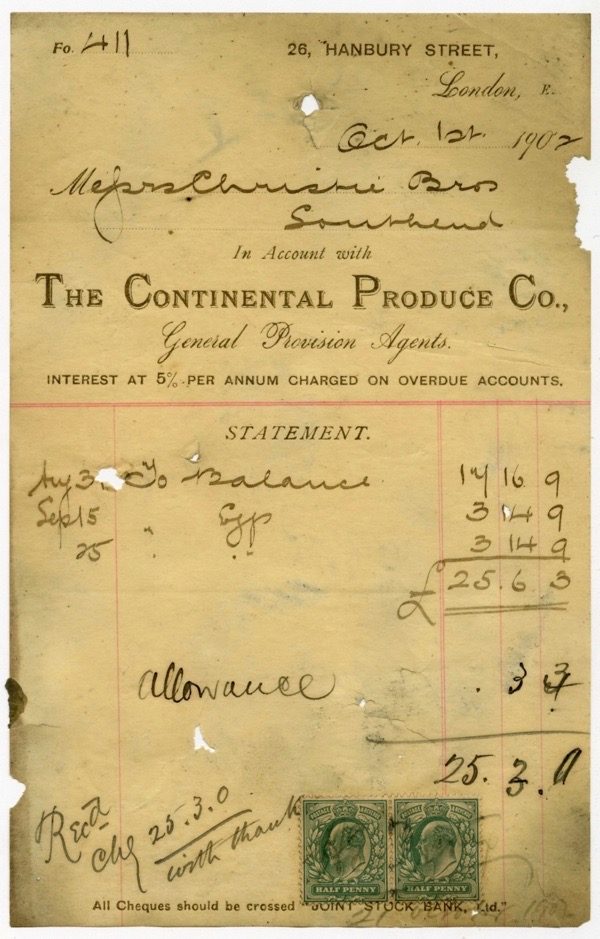 Fo. 411
26, HANBURY STREET,
London, E.
Oct. 1st. 1902
Messrs Christie Bros
Southend
In Account with
THE CONTINENTAL PRODUCE CO.,
General Provision Agents.
INTEREST AT 5% PER ANNUM CHARGED ON OVERDUE ACCOUNTS.
STATEMENT.
Aug 3 To Balance 17 16 9
Sep 15 " Eggs 3 14 9
25 " " 3 14 9
£ 25. 6 3
Allowance . 3 3
25. 3. 0
Recd
Chq 25.3.0
with thanks
HALF PENNY HALF PENNY
All Cheques should be crossed "JOINT STOCK BANK, Ltd."